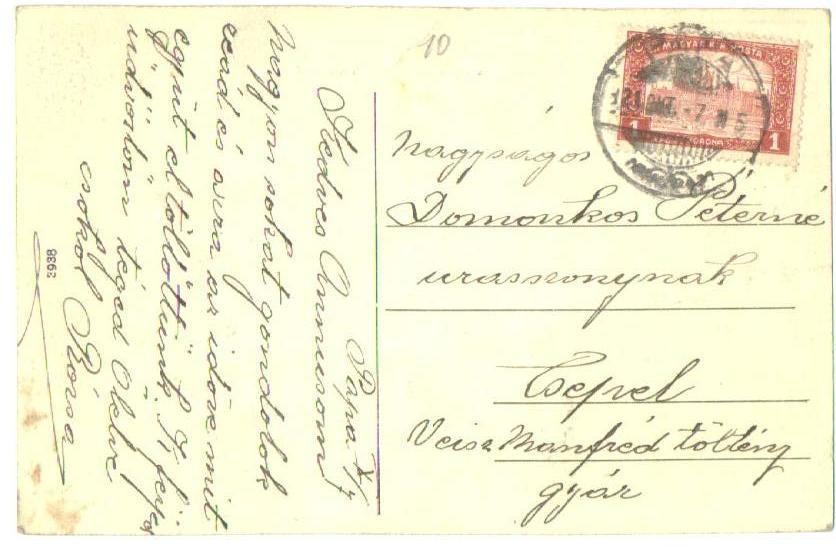 10
MAGYAR KIR. POSTA
1 KORONA 1
21 OKT. -7 N 5
Nagyságos
Domonkos Péterné
uraszonynak
Csepel
Veisz Manfréd töltény
gyár
Pápa X/7
Kedves Annusom!
Nagyon sokat gondolok
ecád és arra az időre mit
együt eltöltöttünk. F. férjed
üdvözlöm téged ölelve
csokol Rózsa
2938